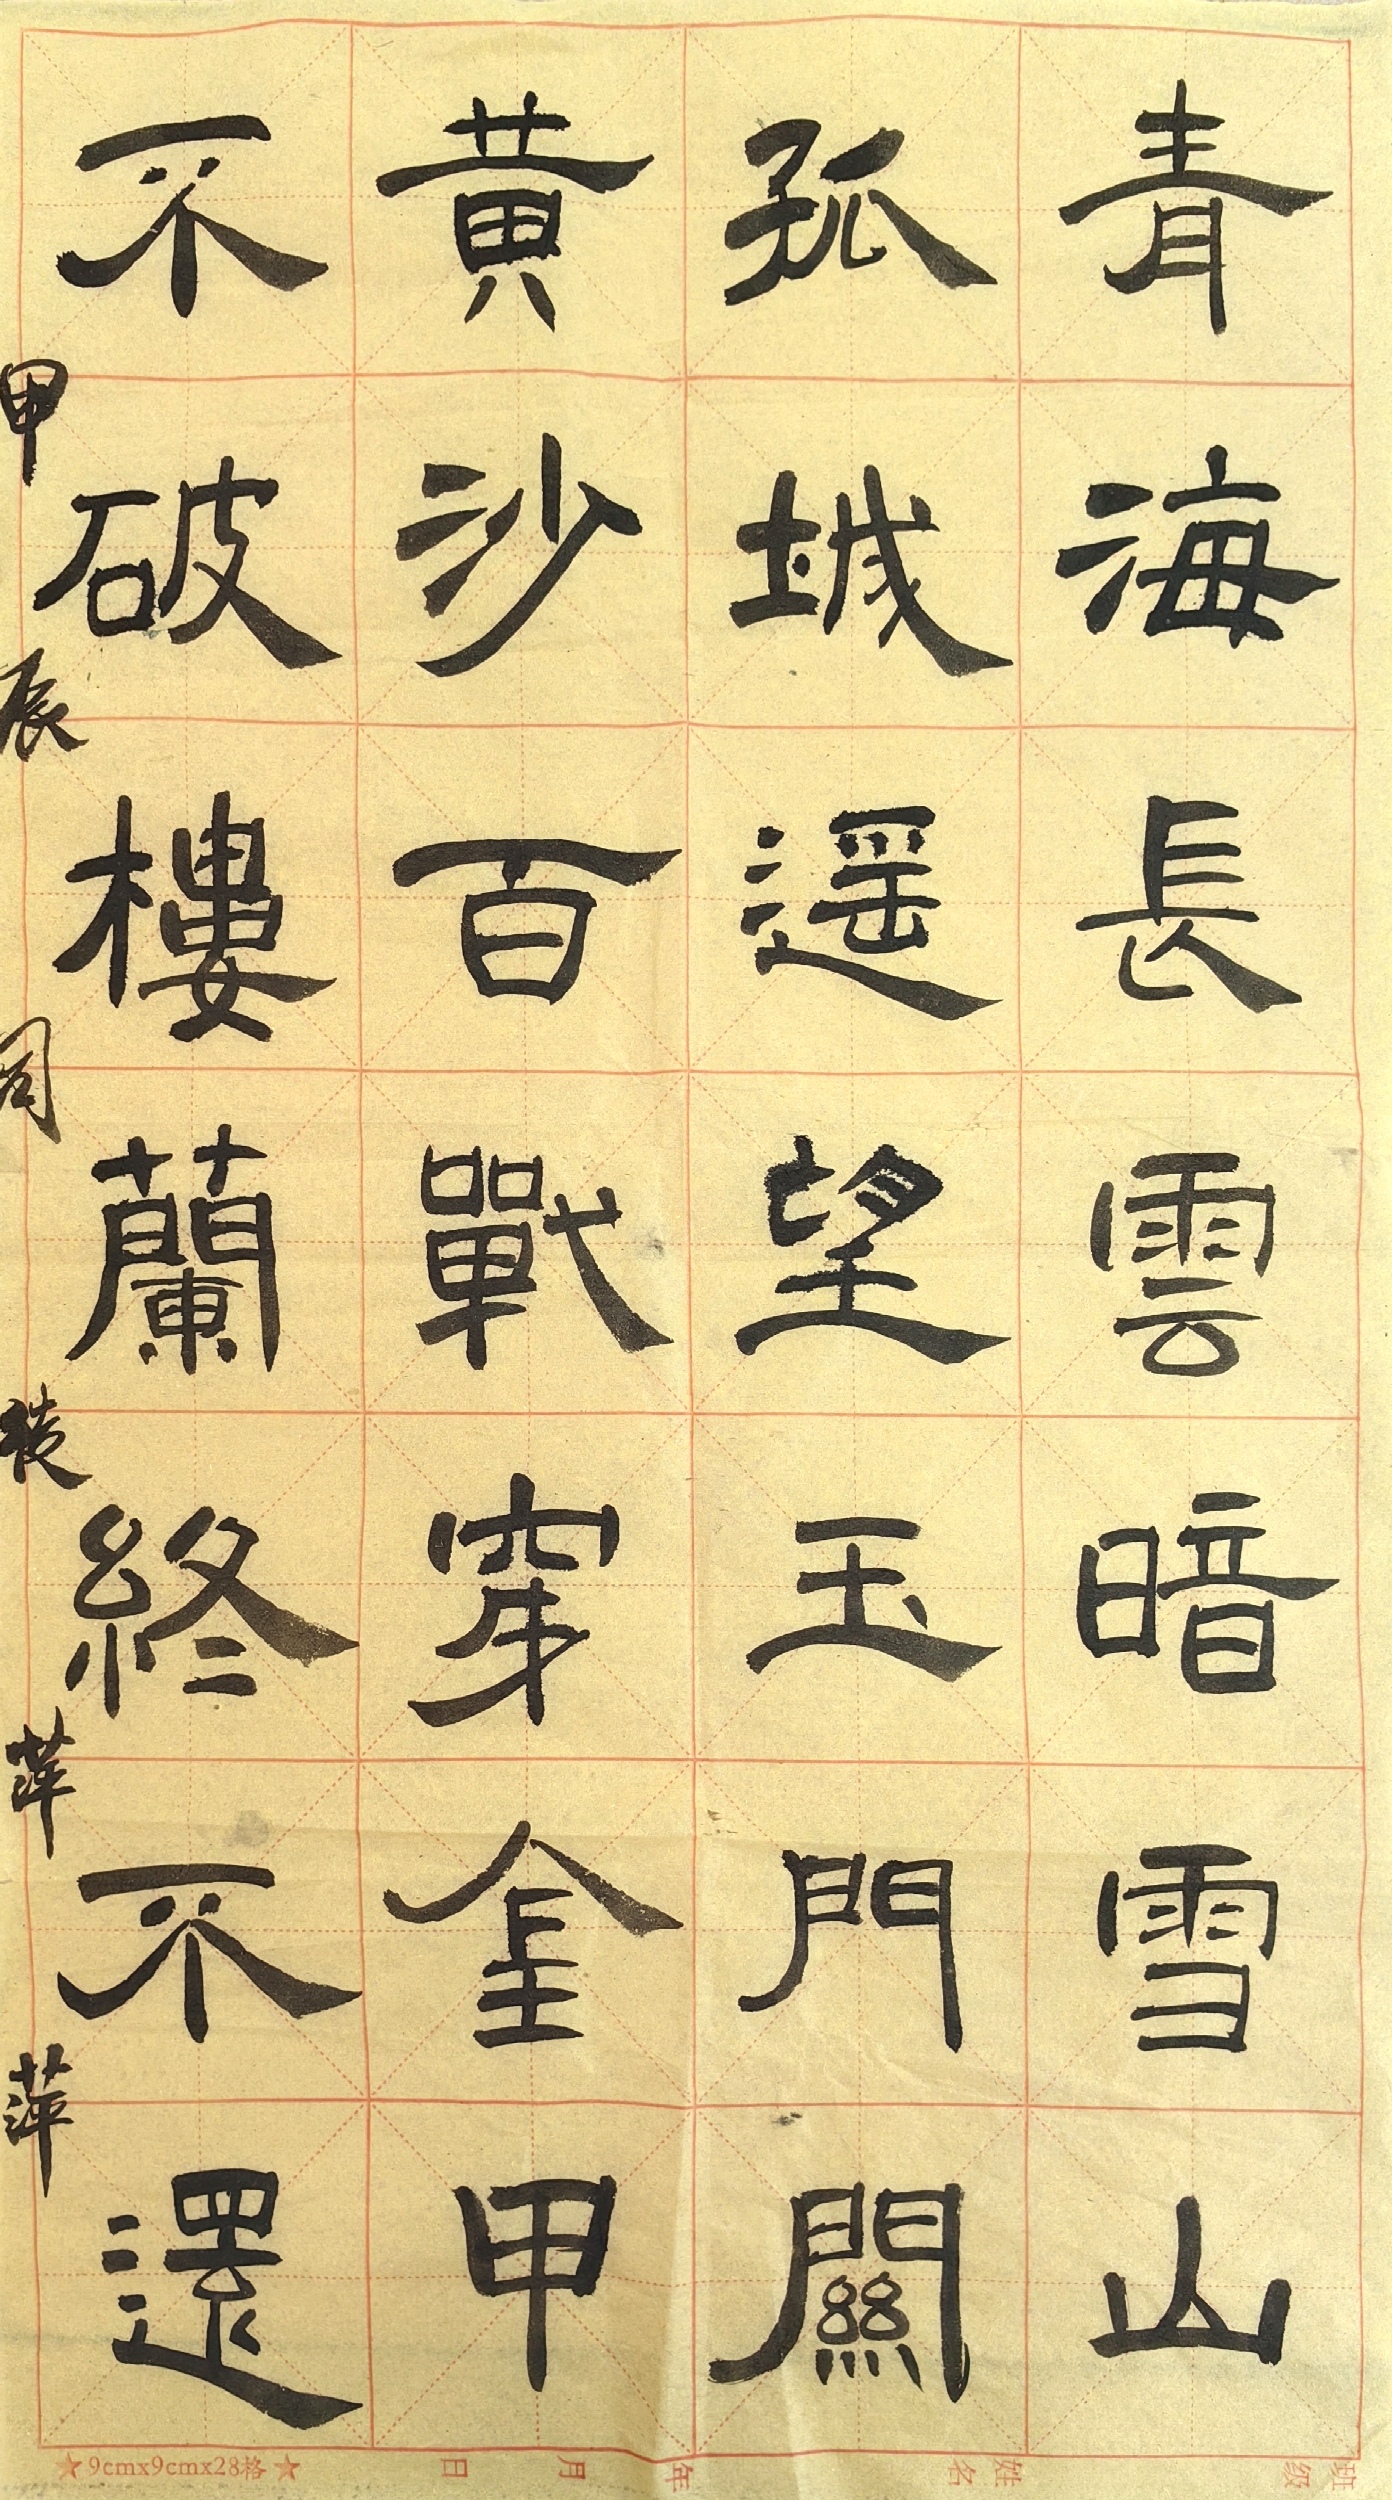 青海長雲暗雪山
孤城遥望玉門關
黄沙百戰穿金甲
不破樓蘭終不還
甲辰 萍萍
★9cmx9cmx28格★ 日 月 年 姓名 班级